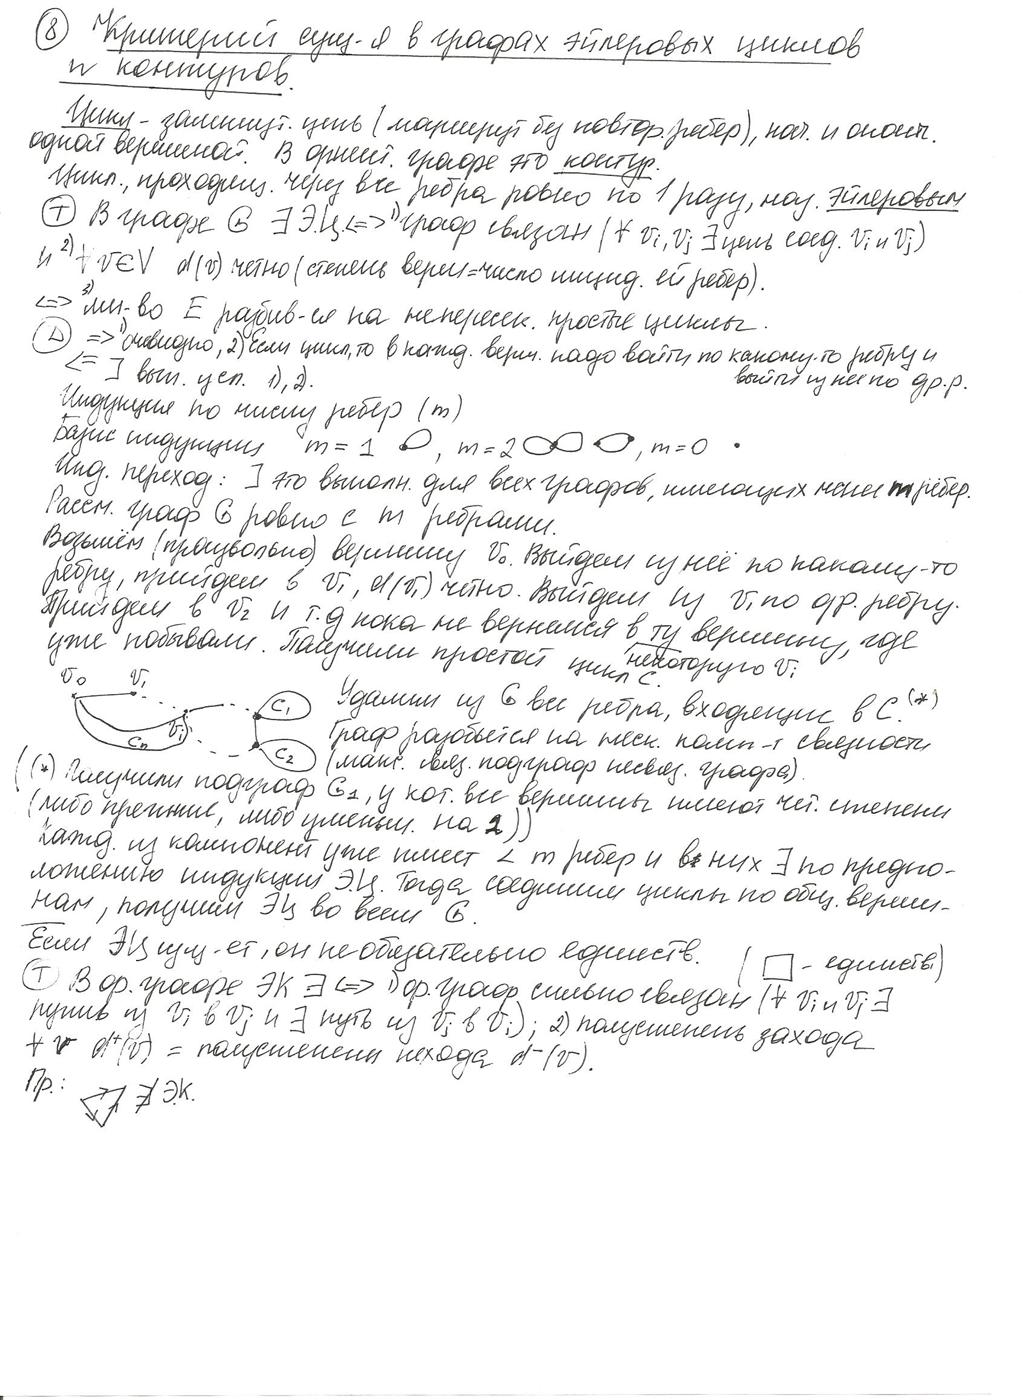 ⑧ Критерий сущ-я в графах эйлеровых циклов
и контуров.
Цикл - замкнут. цепь (маршрут без повтор. ребер), нач. и оконч.
одной вершиной. В ориент. графе это контур.
Цикл., проходящ. через все ребра ровно по 1 разу, наз. эйлеровым
Ⓣ В графе G ∃ Э.Ц. <=> 1) граф связан (∀ Vi, Vj ∃ цепь соед. Vi и Vj)
и 2) ∀ v∈V d(v) четно (степень верш = число инцид. ей ребер).
<=> 3) мн-во E разбив-ся на непересек. простые циклы.
Ⓓ => 1) очевидно, 2) Если цикл, то в кажд. верш. надо войти по какому-то ребру и
выйти из нее по др. р.
<= ] вып. усл. 1), 2).
Индукция по числу ребер (m)
Базис индукции m = 1 , m = 2 , m = 0 •
Инд. переход: ] это выполн. для всех графов, имеющих менее m ребер.
Рассм. граф G ровно с m ребрами.
Возьмём (произвольно) вершину V0. Выйдем из неё по какому-то
ребру, прийдем в V1, d(V1) четно. Выйдем из V1 по др. ребру.
Прийдем в V2 и т.д пока не вернемся в ту вершину, где
уже побывали. Получили простой цикл C. некоторую Vi
V0 V1 Vi Cn C1 C2
Удалим из G все ребра, входящие в C. (*)
Граф разобьется на неск. комп-т связности
(макс. связ. подграф несвяз. графа).
((*) Получили подграф G1, у кот. все вершины имеют чет. степени
(либо прежние, либо уменьш. на 2))
Кажд. из компонент уже имеет < m ребер и в них ∃ по предпо-
ложению индукции Э.Ц. Тогда соединим циклы по общ. верши-
нам, получим ЭЦ во всем G.
Если ЭЦ сущ-ет, он не обязательно единств. (□ - единств.)
Ⓣ В ор. графе ЭК ∃ <=> 1) ор. граф сильно связан (∀ Vi и Vj ∃
путь из Vi в Vj и ∃ путь из Vj в Vi); 2) полустепень захода
∀ v d⁺(v) = полустепени исхода d⁻(v).
Пр.: ∄ Э.К.